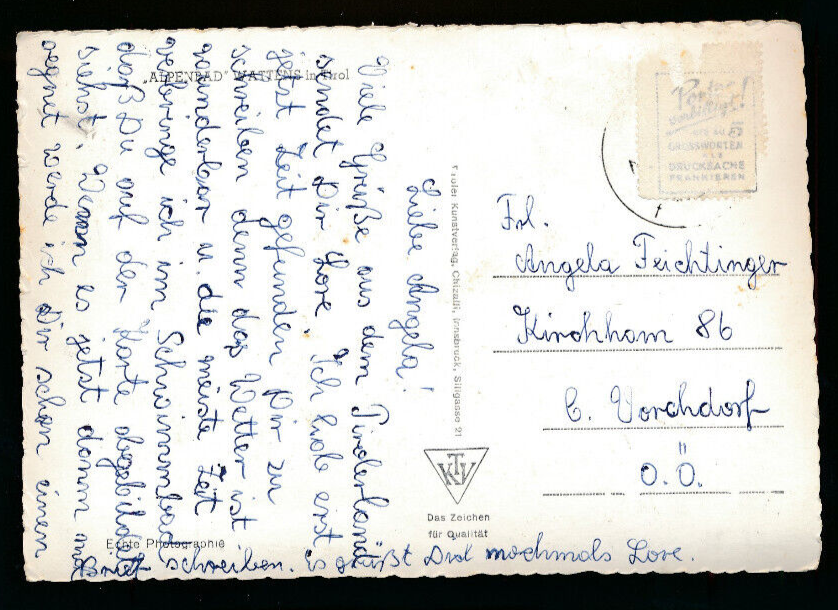 „ALPENBAD" WATTENS in Tirol
Liebe Angela!
Viele Grüße aus dem Tirolerland
sendet Dir Lore. Ich hab erst
jetzt Zeit gefunden Dir zu
schreiben denn das Wetter ist
wunderbar u. die meiste Zeit
verbringe ich im Schwimmbad
daß Du auf der Karte abgebildet
siehst. Wenn es jetzt dann mal
regnet werde ich Dir schon einen
Brief schreiben. Es grüßt Dich nochmals Lore.
Echte Photographie
Tiroler Kunstverlag, Chizzali, Innsbruck, Sillgasse 21
KTV
Das Zeichen
für Qualität
Porto
bis zu 5
GRUSSWORTEN
ALS
DRUCKSACHE
FRANKIEREN
Frl.
Angela Feichtinger
Kirchham 86
b. Vorchdorf
O.Ö.